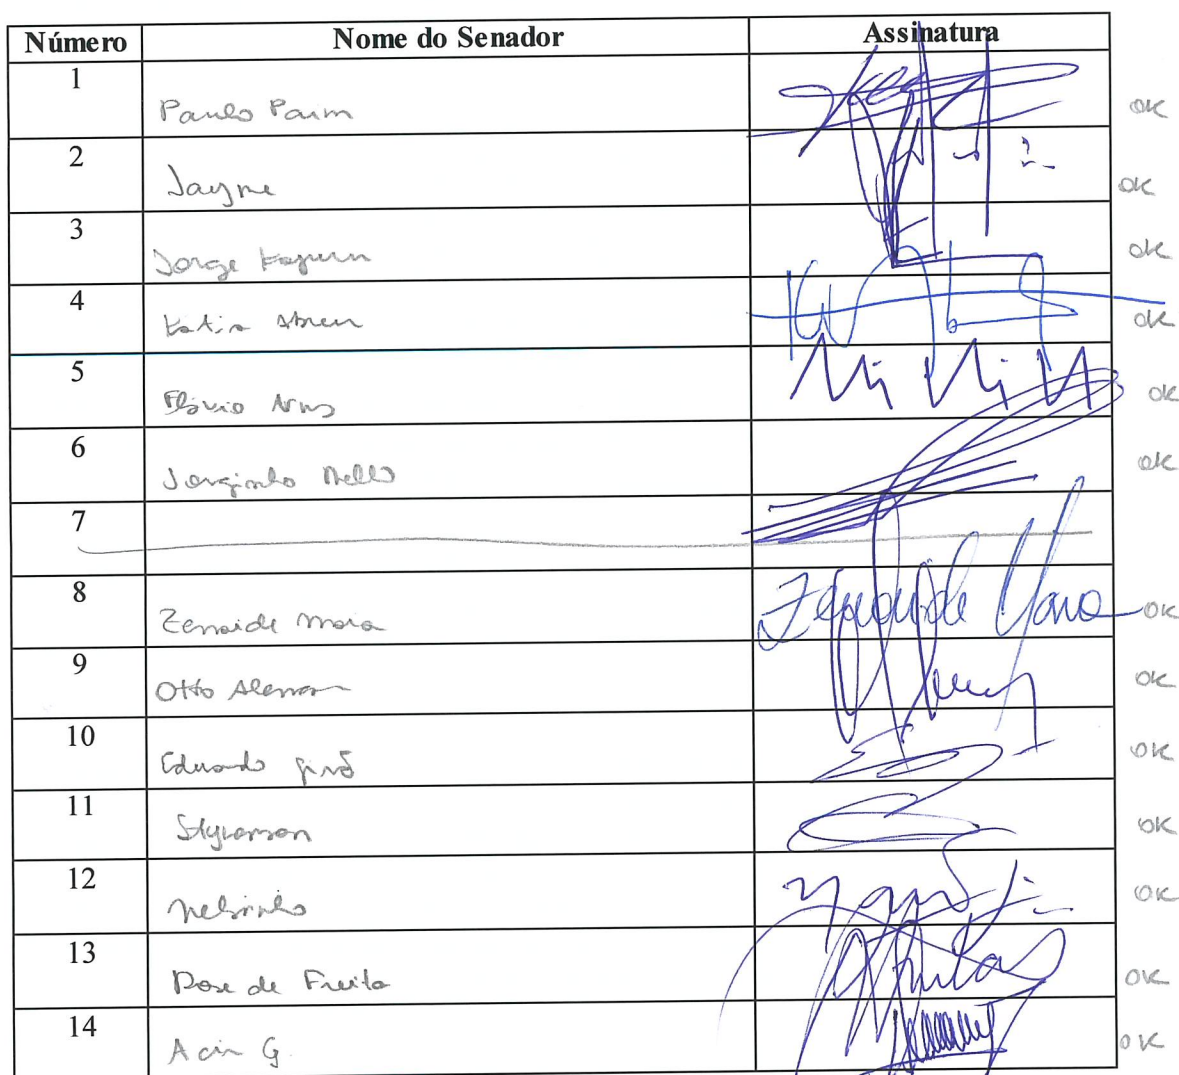 Número Nome do Senador Assinatura
1 Paulo Paim ok
2 Jayme ok
3 Jorge Kajuru ok
4 Katia Abreu ok
5 Flávio Arns ok
6 Jorginho Mello ok
7
8 Zenaide Maia Zenaide Maia ok
9 Otto Alencar ok
10 Eduardo Girão ok
11 Styvenson ok
12 Nelsinho ok
13 Rose de Freitas ok
14 Acir G. ok